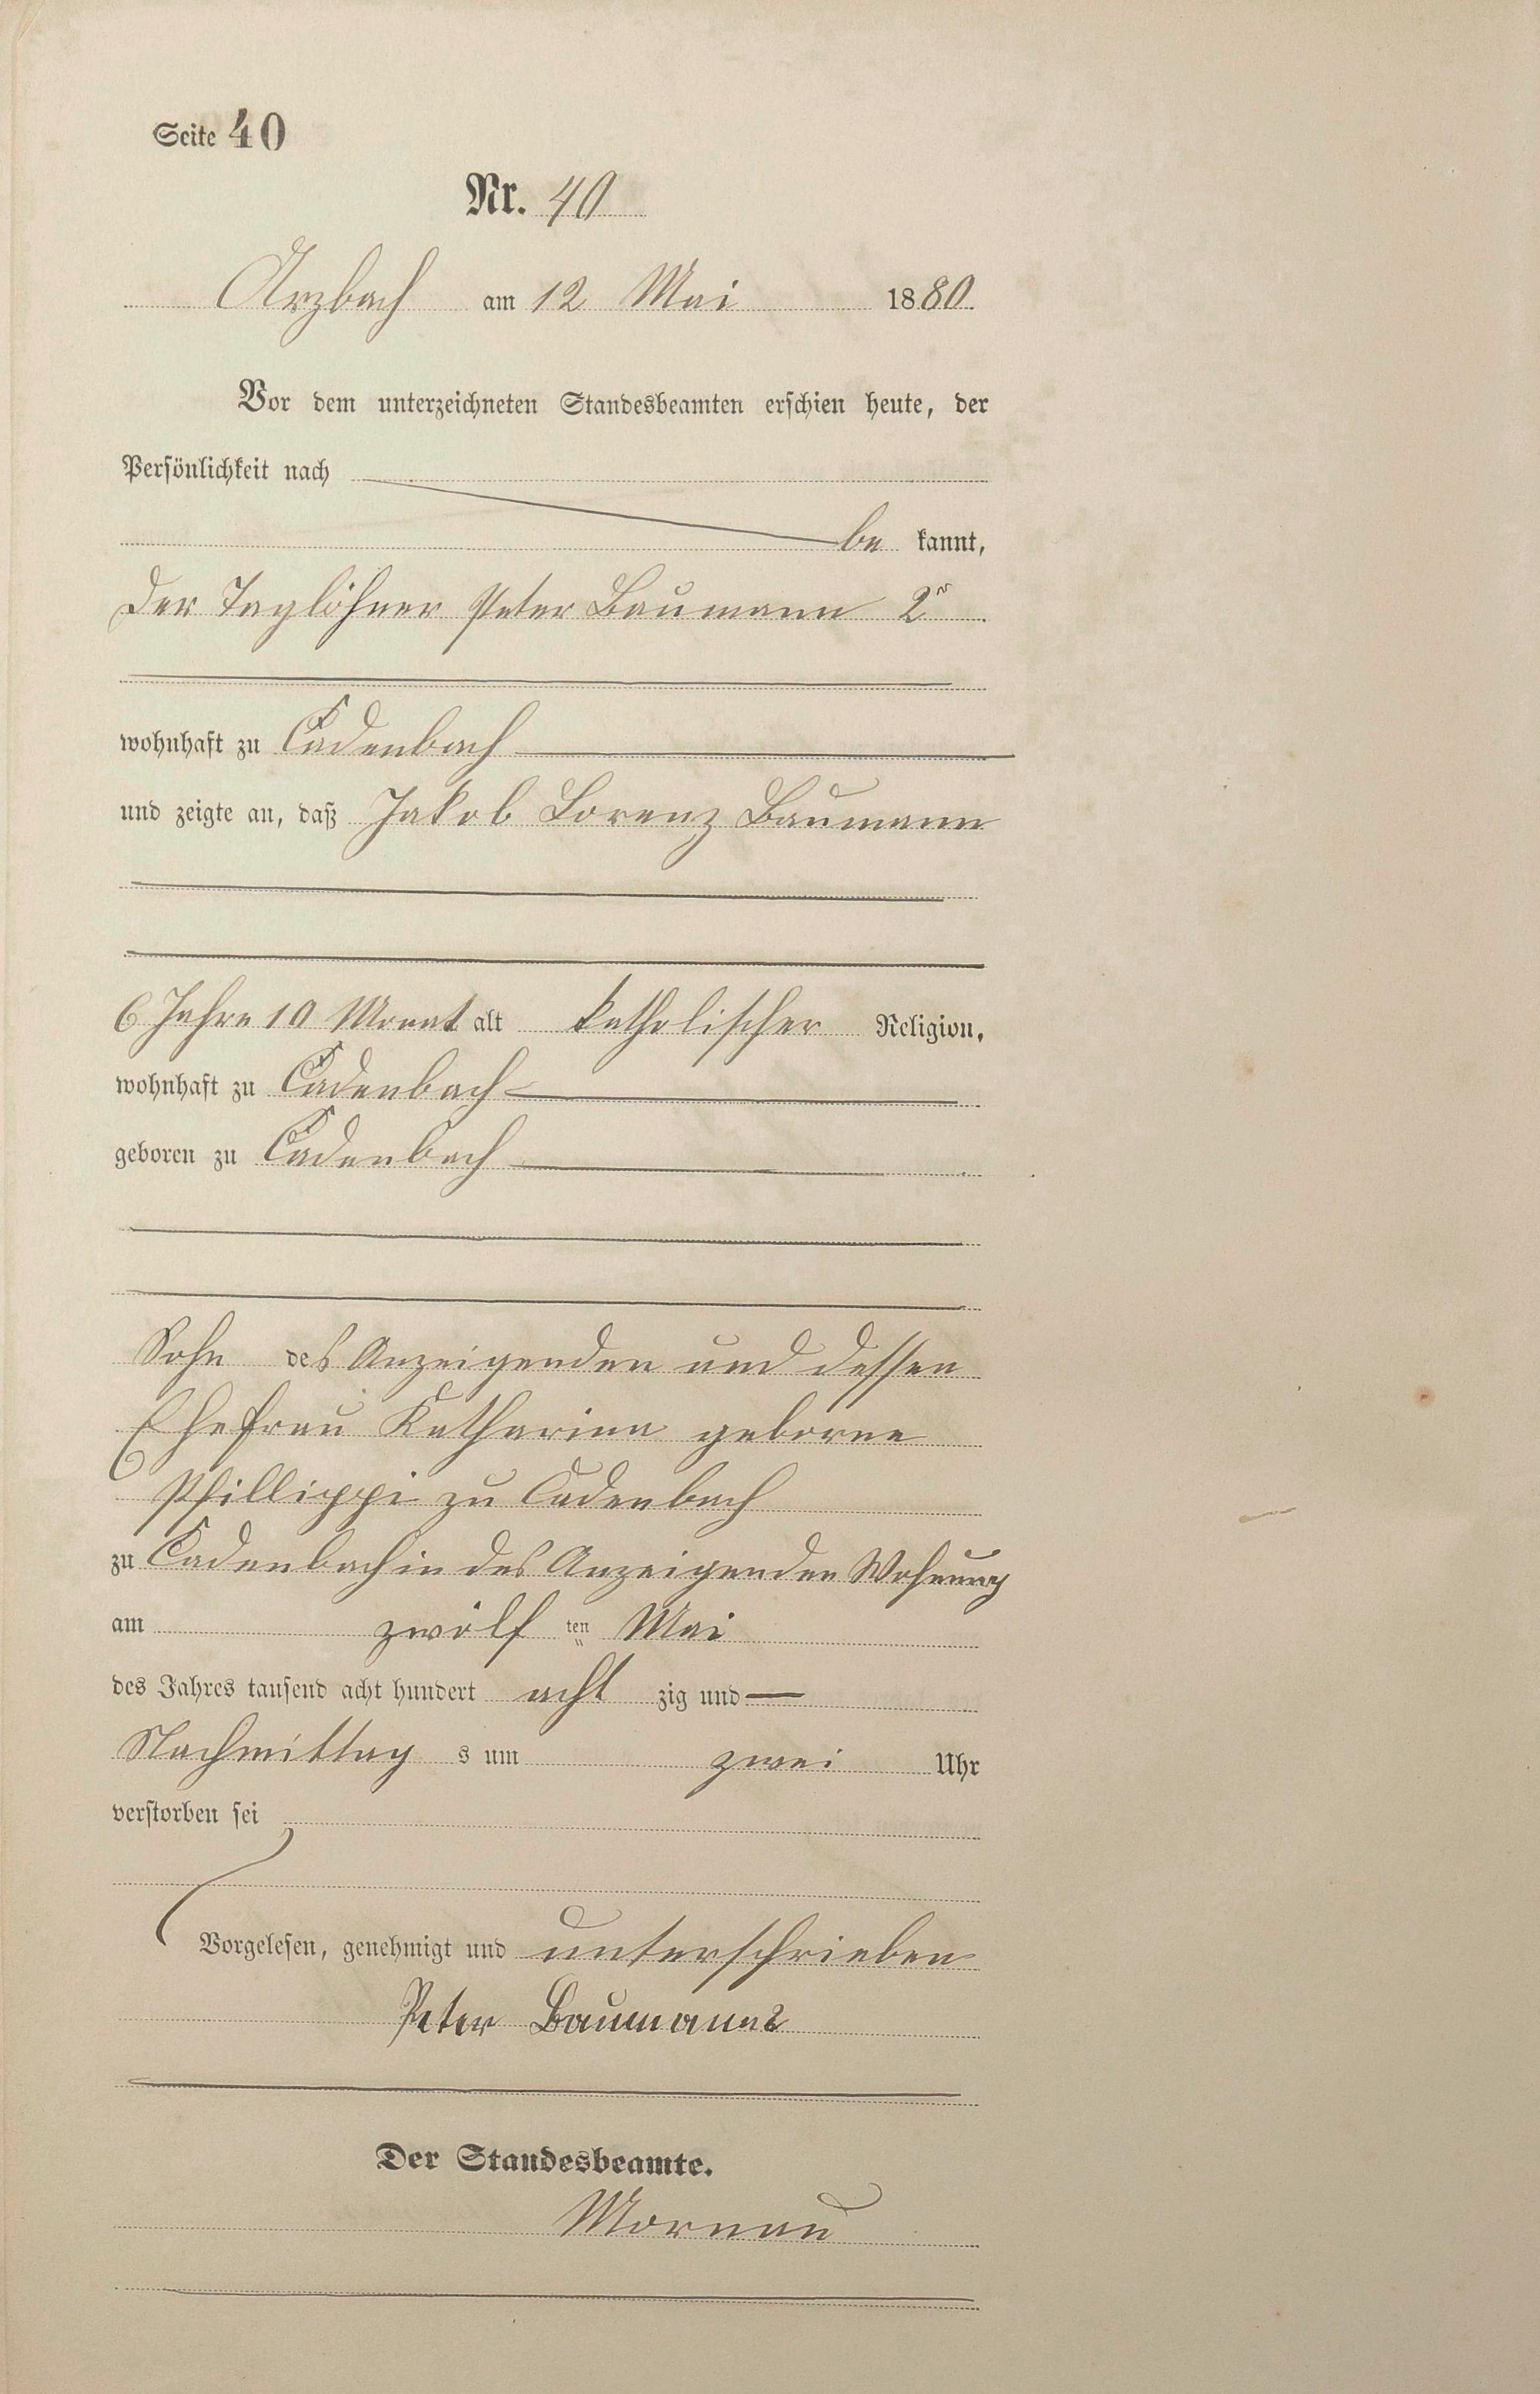 Seite 40
Nr. 40
Arzbach am 12 Mai 1880.
Vor dem unterzeichneten Standesbeamten erschien heute, der
Persönlichkeit nach
be kannt,
der Taglöhner Peter Baumann 2r
wohnhaft zu Cadenbach
und zeigte an, daß Jakob Lorenz Baumann
6 Jahre 10 Monat alt katholischer Religion,
wohnhaft zu Cadenbach
geboren zu Cadenbach
Sohn des Anzeigenden und dessen
Ehefrau Katharina geborne
Phillippi zu Cadenbach
zu Cadenbach in des Anzeigenden Wohnung
am zwölf ten Mai
des Jahres tausend acht hundert acht zig und
Nachmittag s um zwei Uhr
verstorben sei
Vorgelesen, genehmigt und unterschrieben
Peter Baumann 2
Der Standesbeamte.
Mornau